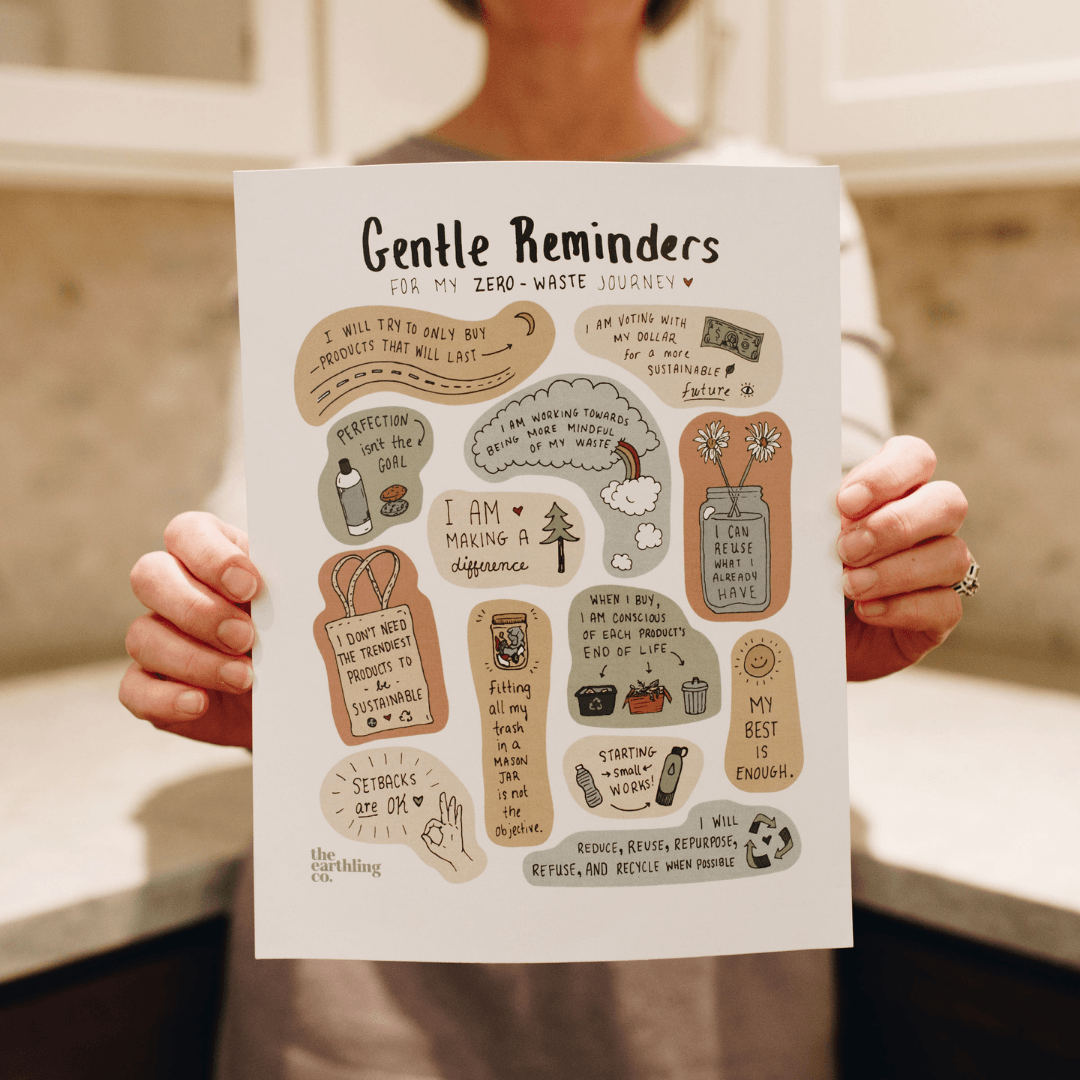 Gentle Reminders
FOR MY ZERO-WASTE JOURNEY
I WILL TRY TO ONLY BUY
PRODUCTS THAT WILL LAST
I AM VOTING WITH
MY DOLLAR
for a more
SUSTAINABLE
future
PERFECTION
isn't the
GOAL
I AM WORKING TOWARDS
BEING MORE MINDFUL
OF MY WASTE
I CAN
REUSE
WHAT I
ALREADY
HAVE
I AM
MAKING A
difference
I DON'T NEED
THE TRENDIEST
PRODUCTS TO
- be -
SUSTAINABLE
fitting
all my
trash
in a
MASON
JAR
is not
the
objective.
WHEN I BUY,
I AM CONSCIOUS
OF EACH PRODUCT'S
END OF LIFE
MY
BEST
IS
ENOUGH.
SETBACKS
are OK
STARTING
small
WORKS!
I WILL
REDUCE, REUSE, REPURPOSE,
REFUSE, AND RECYCLE WHEN POSSIBLE
the
earthling
co.